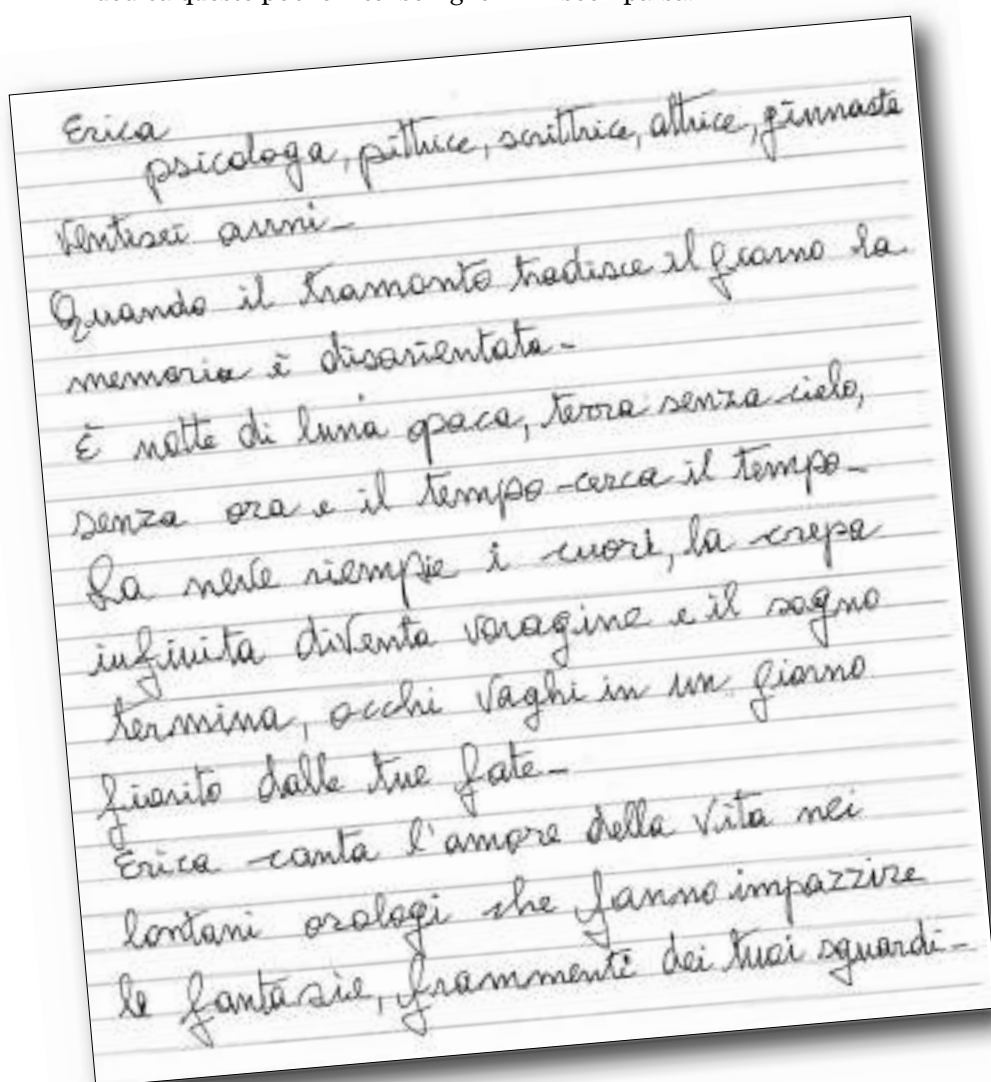 Erica
psicologa, pittrice, scrittrice, attrice, ginnasta
ventisei anni-
Quando il tramonto tradisce il giorno la
memoria è disorientata-
È notte di luna opaca, terra senza cielo,
senza ora e il tempo cerca il tempo-
La neve riempie i cuori, la crepa
infinita diventa voragine e il sogno
termina, occhi vaghi in un giorno
fiorito dalle tue fate-
Erica canta l'amore della vita nei
lontani orologi che fanno impazzire
le fantasie, frammenti dei tuoi sguardi-